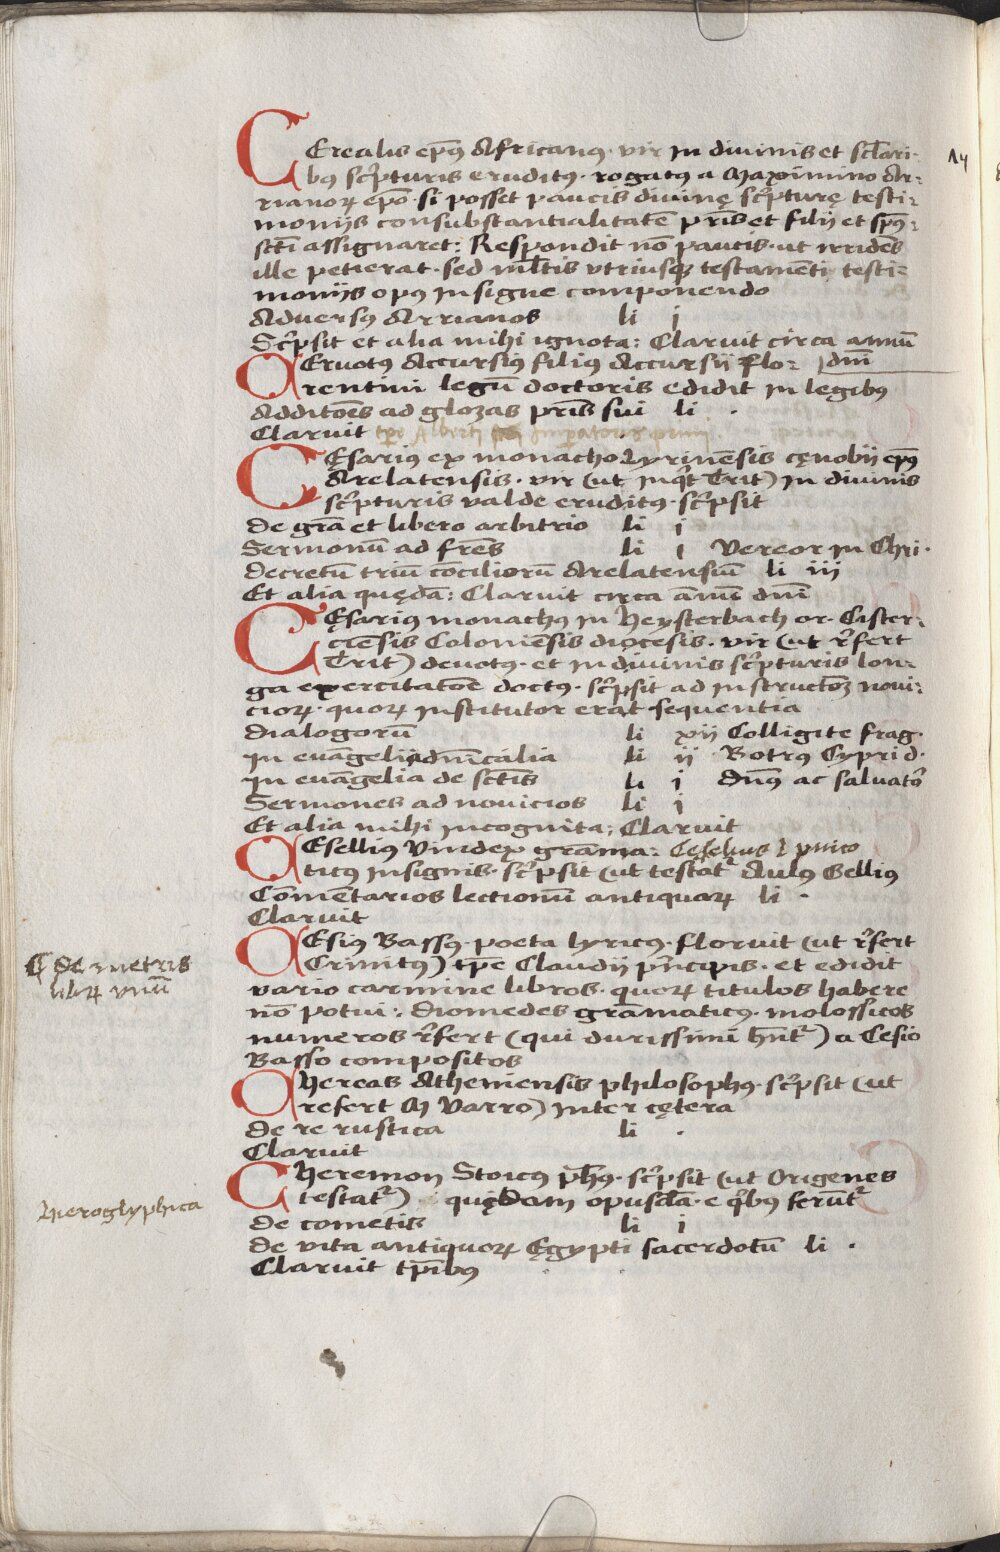 CErealis ep̄us Africanꝰ· vir in diuinis et sc̄lari-
bꝰ sc̓pturis eruditꝰ· rogatꝰ a Maximino Ar-
rianoꝝ ep̄o· si posset paucis diuinę sc̓pturę testi-
monijs consubstantialitatē pr̄is et filij et sp̄us-
sct̄i assignaret: Respondit nō paucis· ut irridēs
ille petierat· sed ml̄tis vtriusqꝫ testamēti testi-
monijs opꝰ insigne componendo
Aduersꝰ Arrianos li j
Sc̓psit et alia mihi ignota: Claruit circa annū
dnī
CEruotꝰ Accursiꝰ filiꝰ Accursij flo-
rentini legū doctoris edidit in legibꝰ
Additōes ad glozas pr̄is sui li .
Claruit tp̄e Alberti Imperatoris primi
CĘsariꝰ ex monacho Lyrinēsis cęnobij ep̄us
Arelatensis· vir (ut inq̓t Trit) in diuinis
sc̓pturis valde eruditꝰ· sc̓psit
de gr̄a et libero arbitrio li j
Sermonū ad fr̄es li j Vereor in Chri·
decretū triū cōciliorū Arelatensiū li iij
Et alia quędā: Claruit circa annū dnī
CĘsariꝰ monachꝰ in Heysterbach or· Cister-
ciēsis Coloniēsis diocesis· vir (ut r̓fert
Trit) deuotꝰ· et in diuinis sc̓pturis lon-
ga exercitatōe doctꝰ· sc̓psit ad instructōꝫ noui-
cioꝝ· quoꝝ institutor erat sequentia
dialogorū li xij Colligite frag·
in euāgelia dnīcalia li ij Botrꝰ Cypri d·
in euāgelia de sct̄is li j dn̄s ac saluato᷒
Sermones ad nouicios li j
Et alia mihi incognita; Claruit
CEsellius Vindex grāma- Ceselius l vnico
ticꝰ insignis· sc̓psit (ut testat᷒ Aulꝰ Gellius
Comētarios lectionū antiquaꝝ li ·
Claruit
CEsiꝰ Bassꝰ· poeta lyricꝰ· floruit (ut r̓fert
Crinitꝰ) tp̄e Claudij pr̓ncipis· et edidit
vario carmine libros· quoꝝ titulos habere
nō potui: diomedes grāmaticꝰ· molossicos
numeros r̓fert (qui durissimi hn̄t᷒) a Cesio
Basso compositos
₵ de metris
libꝝ vnū
CHereas Atheniensis philosophꝰ· sc̓psit (ut
refert M Varro) inter cętera
de re rustica li ·
Claruit
CHeremon Stoicꝰ ph̄us· sc̓psit (ut Origenes
testat᷒) quędam opuscla· e q̓bus ferūt᷒
Hieroglyphica
de cometis li j
de vita antiquoꝝ Ęgypti sacerdotū li ·
Claruit tp̄ibꝰ
14